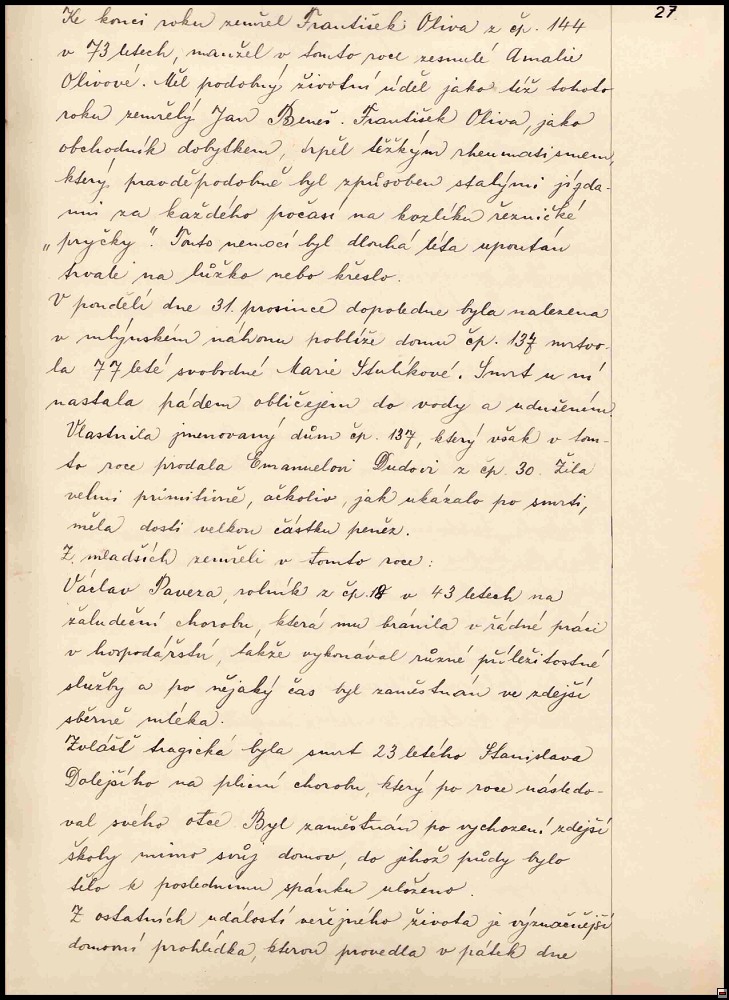 27
Ke konci roku zemřel František Oliva z čp. 144
v 73 letech, manžel v tomto roce zesnulé Amalie
Olivové. Měl podobný životní úděl jako též tohoto
roku zemřelý Jan Beneš. František Oliva, jako
obchodník dobytkem, trpěl těžkým rheumatismem,
který pravděpodobně byl způsoben stalými jízda-
mi za každého počasí na kozlíku řeznické
„pryčky". Touto nemocí byl dlouhá léta upoután
trvale na lůžko nebo křeslo.
V pondělí dne 31. prosince dopoledne byla nalezena
v mlýnském náhonu poblíže domu čp. 137 mrtvo-
la 77 leté svobodné Marie Stulíkové. Smrt u ní
nastala pádem obličejem do vody a udušením.
Vlastnila jmenovaný dům čp. 137, který však v tom-
to roce prodala Emanuelovi Dudovi z čp. 30. Žila
velmi primitivně, ačkoliv, jak ukázalo po smrti,
měla dosti velkou částku peněz.
Z mladších zemřeli v tomto roce:
Václav Paveza, rolník z čp. 18 v 43 letech na
žaludeční chorobu, která mu bránila v řádné práci
v hospodářství, takže vykonával různé příležitostné
služby a po nějaký čas byl zaměstnán ve zdejší
sběrně mléka.
Zvlášť tragická byla smrt 23 letého Stanislava
Dolejšího na plicní chorobu, který po roce následo-
val svého otce. Byl zaměstnán po vychození zdejší
školy mimo svůj domov, do jehož půdy bylo
tělo k poslednímu spánku uloženo.
Z ostatních událostí veřejného života je význačnější
domovní prohlídka, kterou provedla v pátek dne